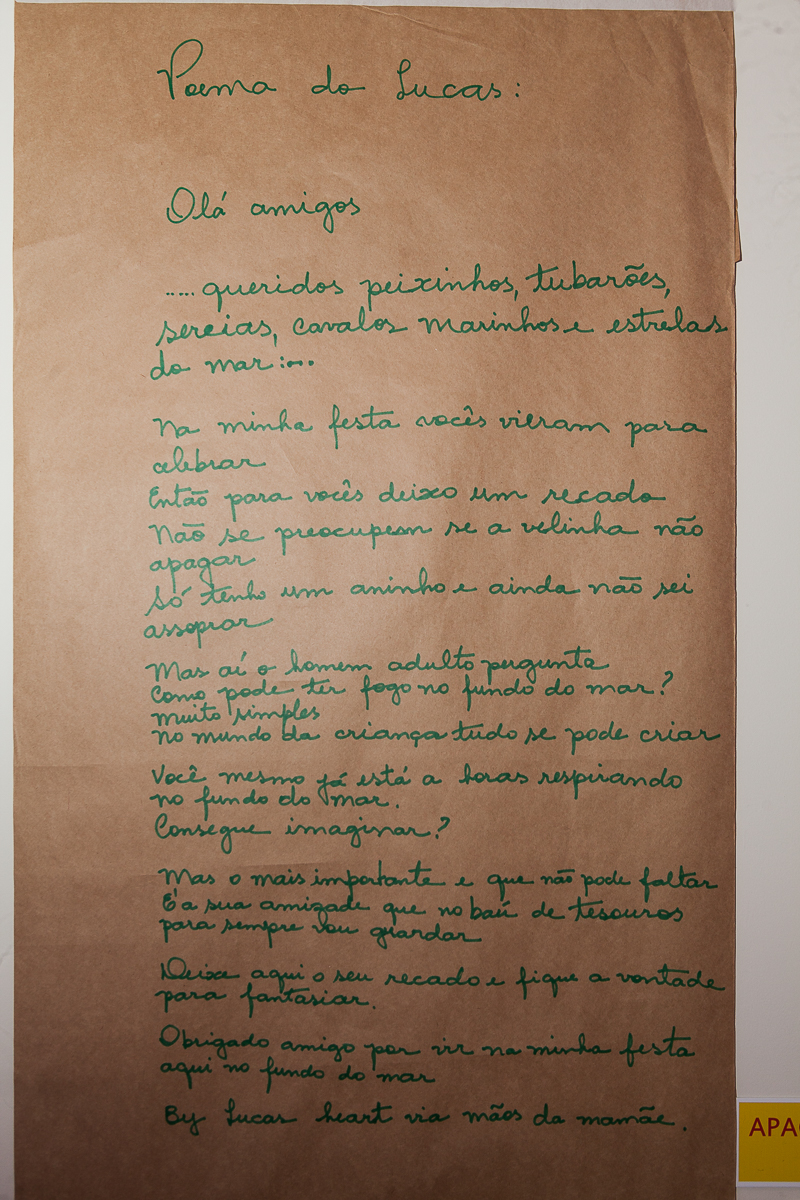 Poema do Lucas:
Olá amigos
..... queridos peixinhos, tubarões,
sereias, cavalos marinhos e estrelas
do mar:...
Na minha festa vocês vieram para
celebrar
Então para vocês deixo um recado
Não se preocupem se a velinha não
apagar
Só tenho um aninho e ainda não sei
assoprar
Mas aí o homem adulto pergunta
Como pode ter fogo no fundo do mar?
muito simples
no mundo da criança tudo se pode criar
Você mesmo já está a horas respirando
no fundo do mar.
Consegue imaginar?
Mas o mais importante e que não pode faltar
É a sua amizade que no baú de tesouros
para sempre vou guardar
Deixe aqui o seu recado e fique a vontade
para fantasiar.
Obrigado amigo por vir na minha festa
aqui no fundo do mar
By Lucas heart via mãos da mamãe.